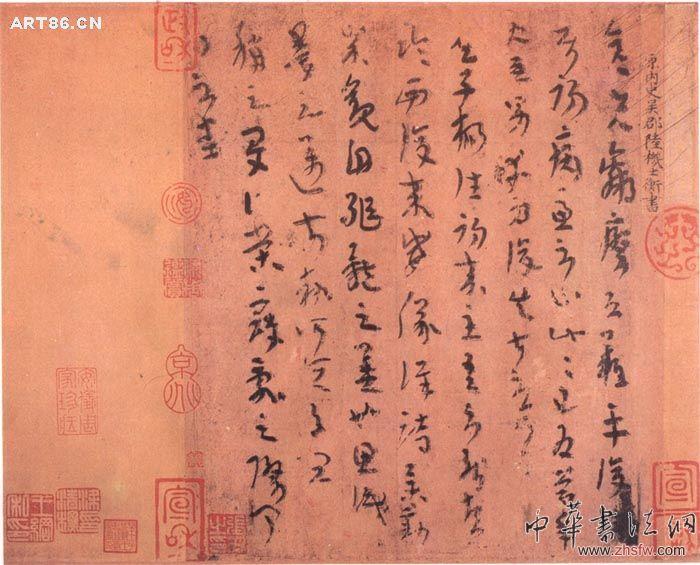 ART86.CN
晉內史吳郡陸機士衡書
彥先羸瘵恐難平復
往屬初病慮不止此此已為慶
承使唯男幸為復失前憂耳
吳子楊往初來主吾不能盡
臨西復來威儀詳跱舉動
成觀自軀體之美也思識
量之邁前勢所恒有宜
稱之夏伯榮寇亂之際聞
問不悉
政和
宣和
宣和
中華書法網
www.zhsfw.com